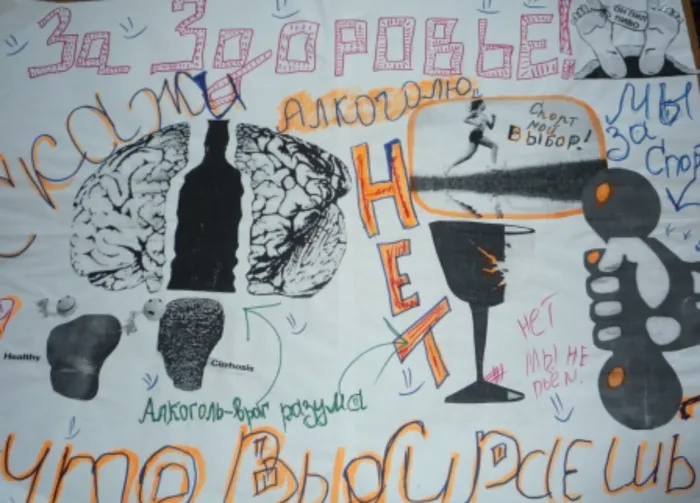 За Здоровье!
ОН ПИЛ
ПИВО
Скажи
АЛКОГОЛЮ
НЕТ
Спорт
мой
Выбор!
МЫ
За
Спор
Healthy
Cirrhosis
НЕТ
МЫ НЕ
пьем.
Алкоголь-враг разума
ЧТО ВЫБИРАЕШЬ